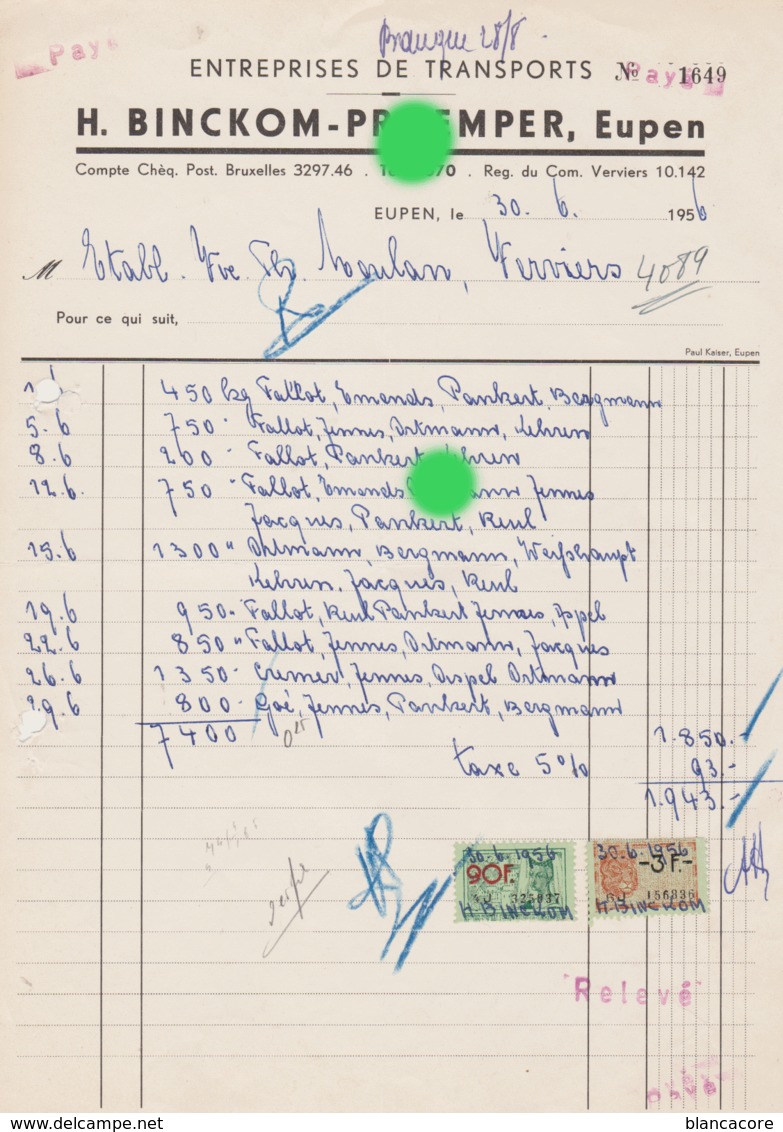 Banque 28/8.
Payé
ENTREPRISES DE TRANSPORTS № 1649
Payé
H. BINCKOM-PR EMPER, Eupen
Compte Chèq. Post. Bruxelles 3297.46 . 70 . Reg. du Com. Verviers 10.142
EUPEN, le 30. 6. 1956
M Etabl. Vve. Th. Moulan, Verviers 4089
Pour ce qui suit,
Paul Kaiser, Eupen
450 kg Fallot, Emonds, Pankert, Bergmann
5.6 750 " Fallot, Jennes, Ortmann, Kehren
8.6 200 " Fallot, Pankert, Kehren
12.6. 750 " Fallot, Emonds, Jennes
Jacques, Pankert, Keul
15.6 1300 " Ortmann, Bergmann, Weißhaupt
Kehren, Jacques, Keul
19.6 950 " Fallot, Keul Pankert Jennes, Appel
22.6 850 " Fallot, Jennes, Ortmann, Jacques
26.6 1350 " Cremer, Jennes, Ortmann
29.6 800 " Goé, Jennes, Pankert, Bergmann
7400 0.25 1.850.-
taxe 5% 93.-
1.943.-
30.6.1956 30.6.1956
90F. -3F.-
325037 156836
H. BINCKOM H. BINCKOM
"Relevé"
Payé